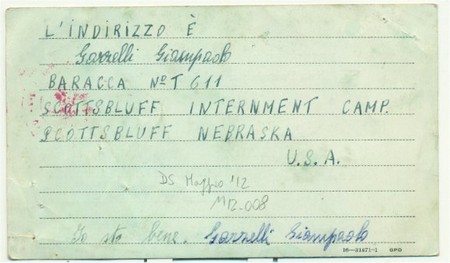 L'INDIRIZZO È
Garzelli Giampaolo
BARACCA Nº T 611
SCOTTSBLUFF INTERNMENT CAMP.
SCOTTSBLUFF NEBRASKA
U.S.A.
DS Maggio '12
MB-008
Io sto bene. Garzelli Giampaolo
16—31471-1 GPO